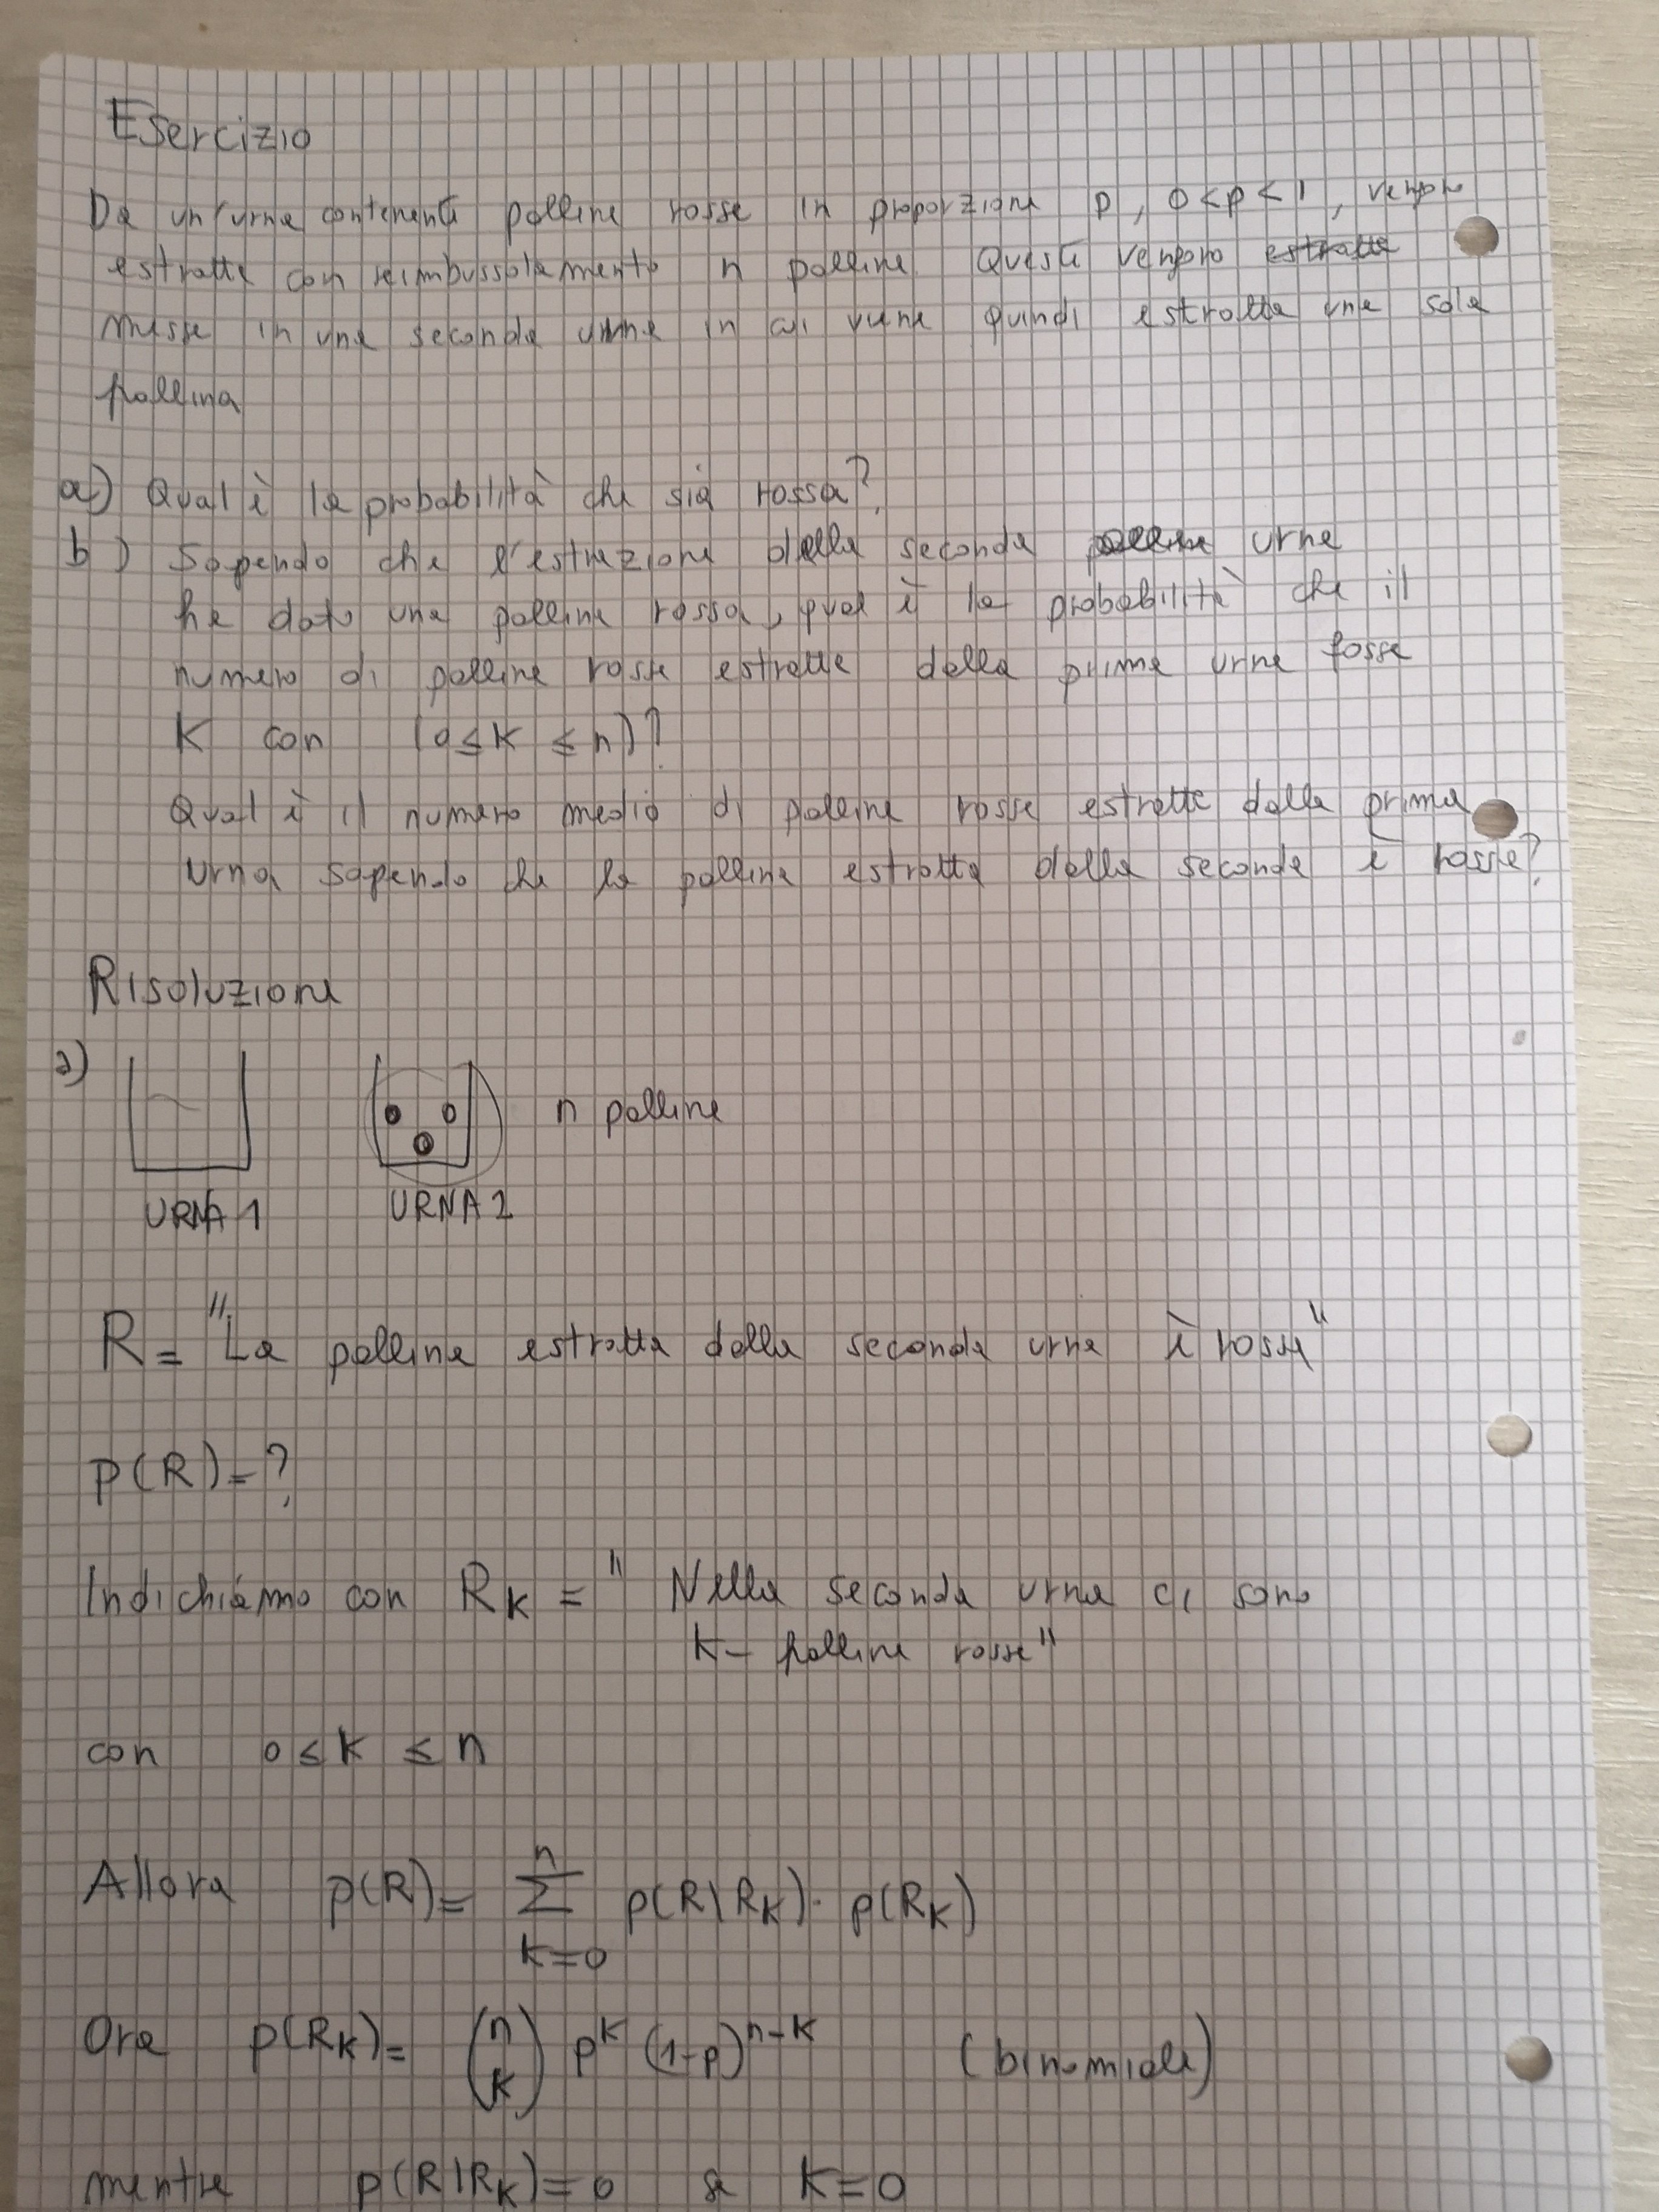 Esercizio
Da un'urna contenenti palline rosse in proporzione p, 0<p<1, vengono
estratte con reimbussolamento n palline. Questi vengono estratte
messe in una seconda urna in cui viene quindi estratta una sola
pallina
a) Qual è la probabilità che sia rossa?
b) Sapendo che l'estrazione della seconda palline urna
ha dato una pallina rossa, qual è la probabilità che il
numero di palline rosse estratte dalla prima urna fosse
K con (0≤K≤n)?
Qual è il numero medio di palline rosse estratte dalla prima
urna sapendo che la pallina estratta dalla seconda è rossa?
Risoluzione
a)
n palline
URNA 1 URNA 2
R = "La pallina estratta dalla seconda urna è rossa"
p(R)=?
Indichiamo con R_K = "Nella seconda urna ci sono
K- palline rosse"
con 0≤K≤n
Allora p(R)= \sum_{K=0}^{n} p(R|R_K)· p(R_K)
Ora p(R_K)= \binom{n}{K} p^K (1-p)^{n-K} (binomiale)
mentre p(R|R_K)=0 se K=0